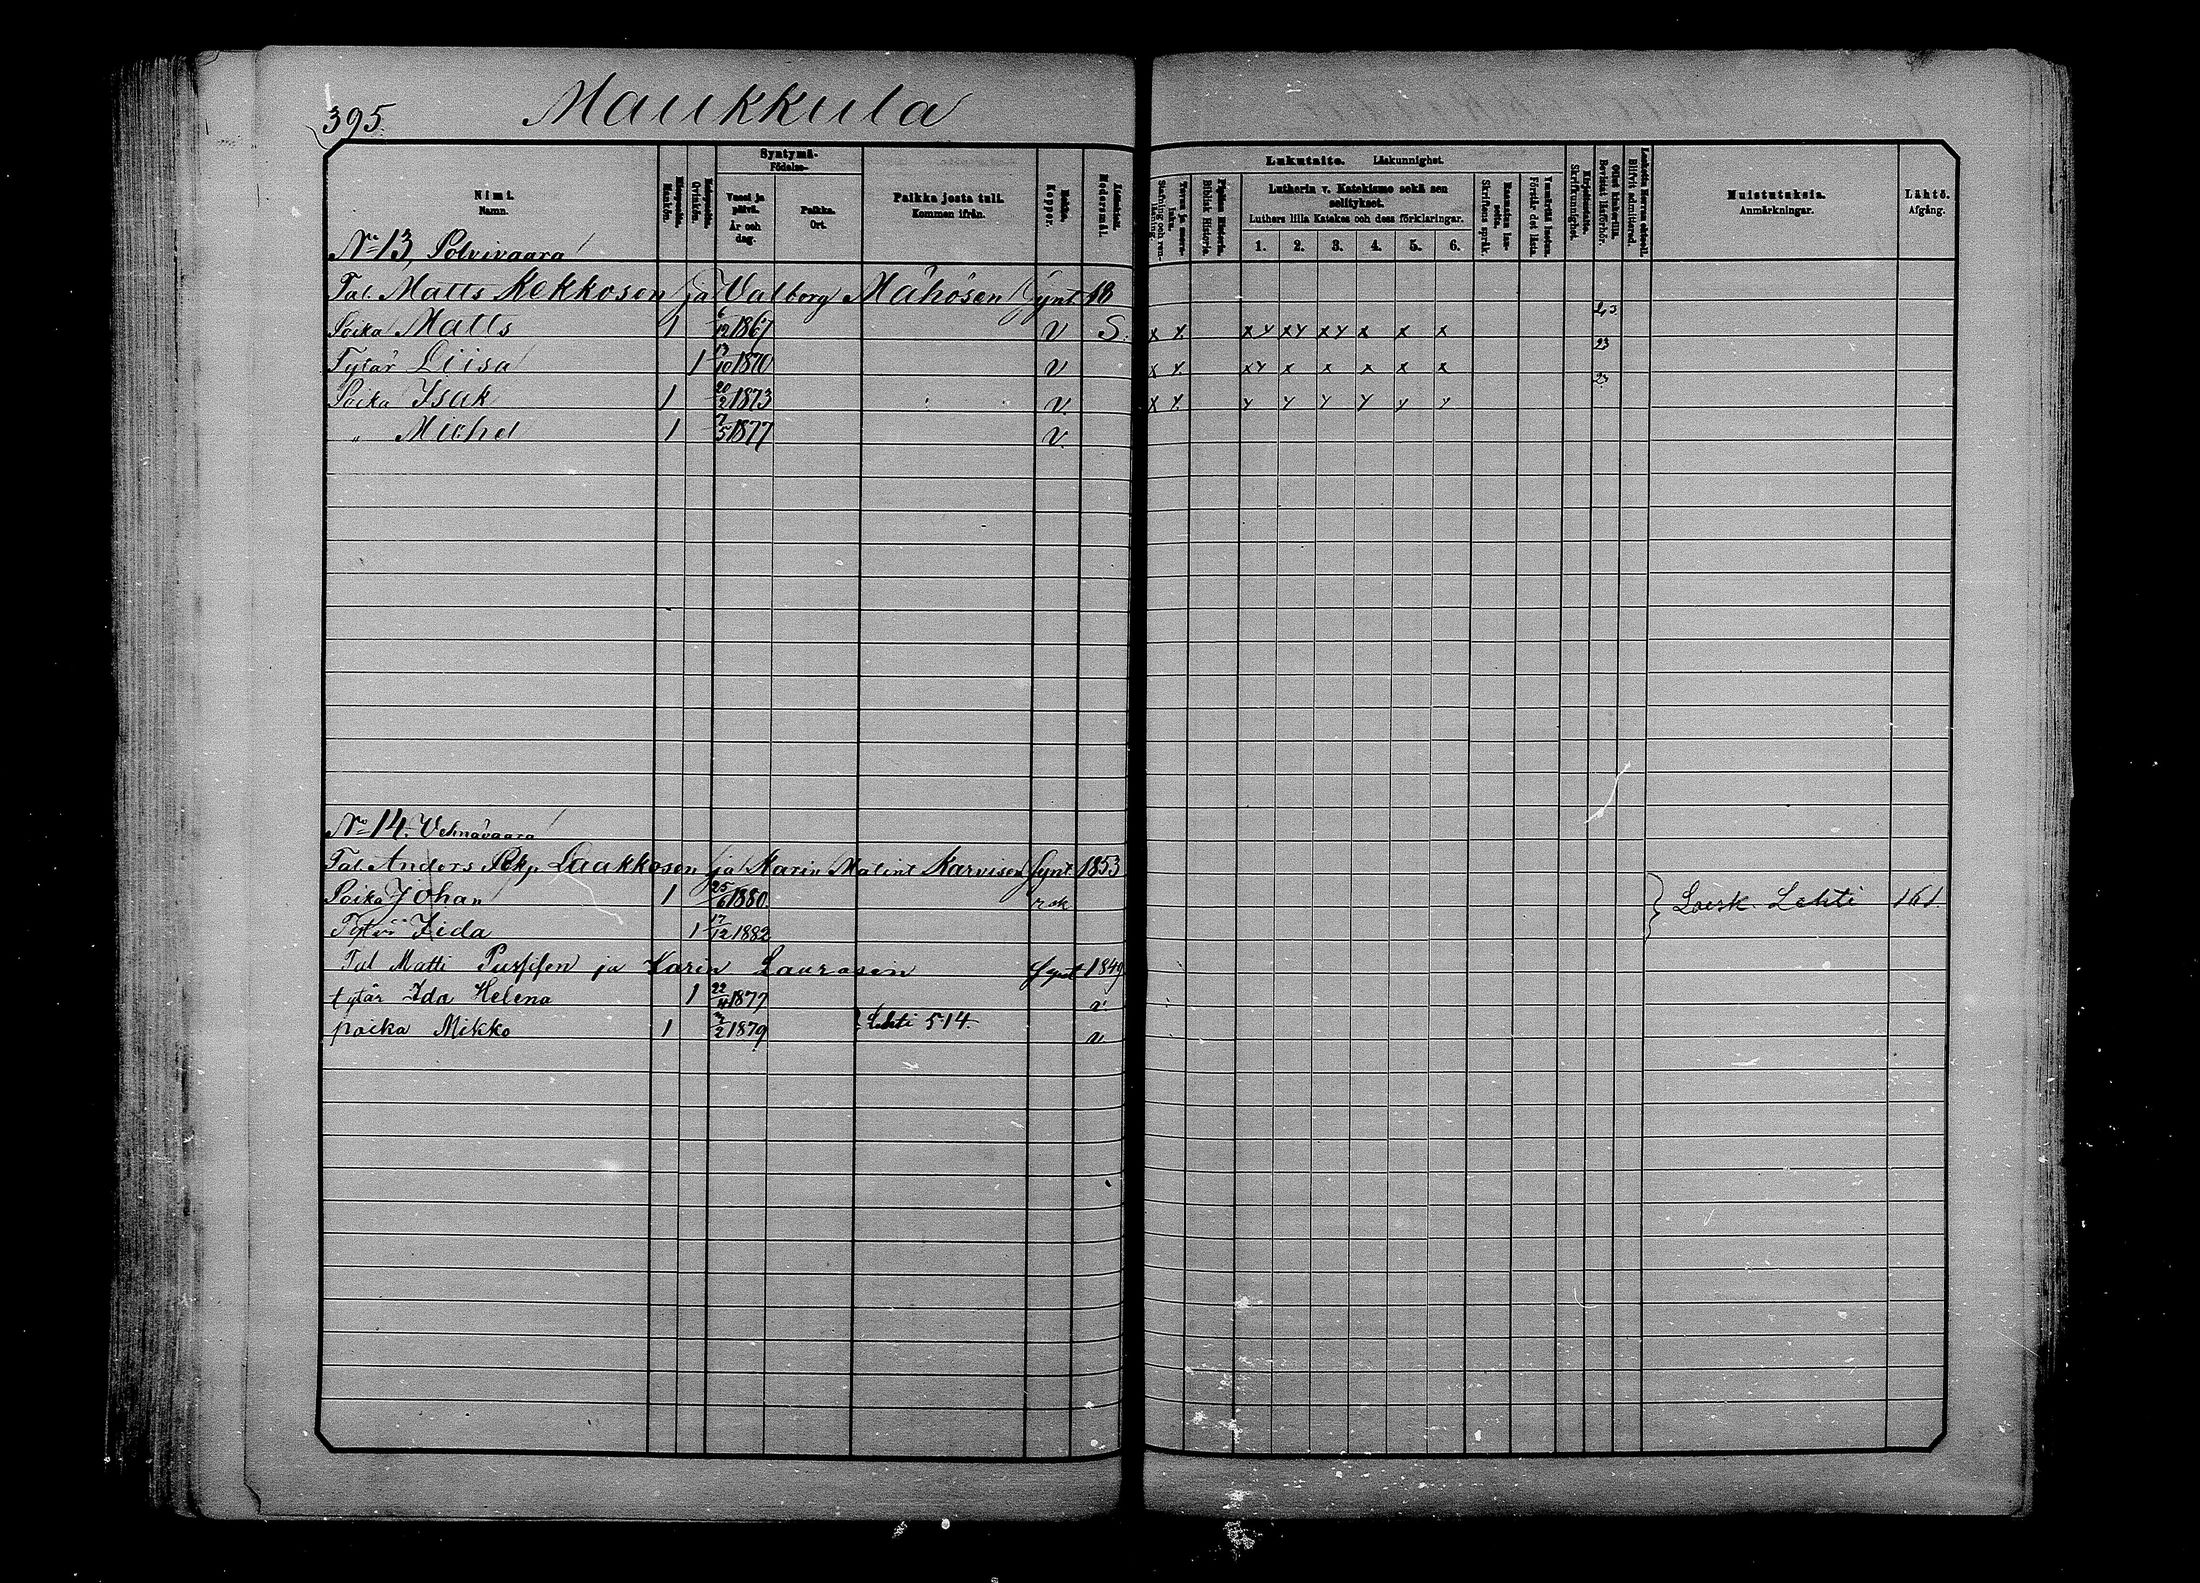 395.
Haukkula
Nimi.
Namn.
Miespuolta.
Mankön.
Vaimopuolta.
Qvinkön.
Syntymä-
Födelse-
Vuosi ja päivä.
År och dag.
Paikka.
Ort.
Paikka josta tuli.
Kommen ifrån.
Rokko.
Koppor.
Äidinkieli.
Modersmål.
Lukutaito. Läskunnighet.
Biblisk Historia.
Lutherin v. Katekismo sekä sen selitykset.
Luthers lilla Katekes och dess förklaringar.
1. 2. 3. 4. 5. 6.
Skriftens språk.
Ymmärtää luetun.
Förstår det lästa.
Kirjoitustaito.
Skrifkunnighet.
Ollut kinkerillä.
Bevistat läsförhör.
Blifvit admitterad.
Muistutuksia.
Anmärkningar.
Lähtö.
Afgång.
No 13, Polvivaara
Tal. Matts Kekkosen ja Valborg Mähösen Synt 18
Poika Matts 1 6/12 1867 v S. x x. xy xy xy x x x 23
Tytär Liisa 1 13/10 1870 v x x. xy x x x x x 23
Poika Isak 1 20/2 1873 v. x x. y y y y y y 23
" Michel 1 7/5 1877 v.
No 14. Vehnävaara
Tal. Anders Pekp. Laakkosen ja Karin Malint. Karvisen Synt 1853
Poika Johan 1 25/6 1880. rok } Loisk. Lehti 161.
Tytär Iida 1 17/12 1882
Tal Matti Purssisen ja Karin Laurosen Synt 1849
tytär Ida Helena 1 22/4 1877 v.
poika Mikko 1 3/2 1879 } Lehti 514. v.